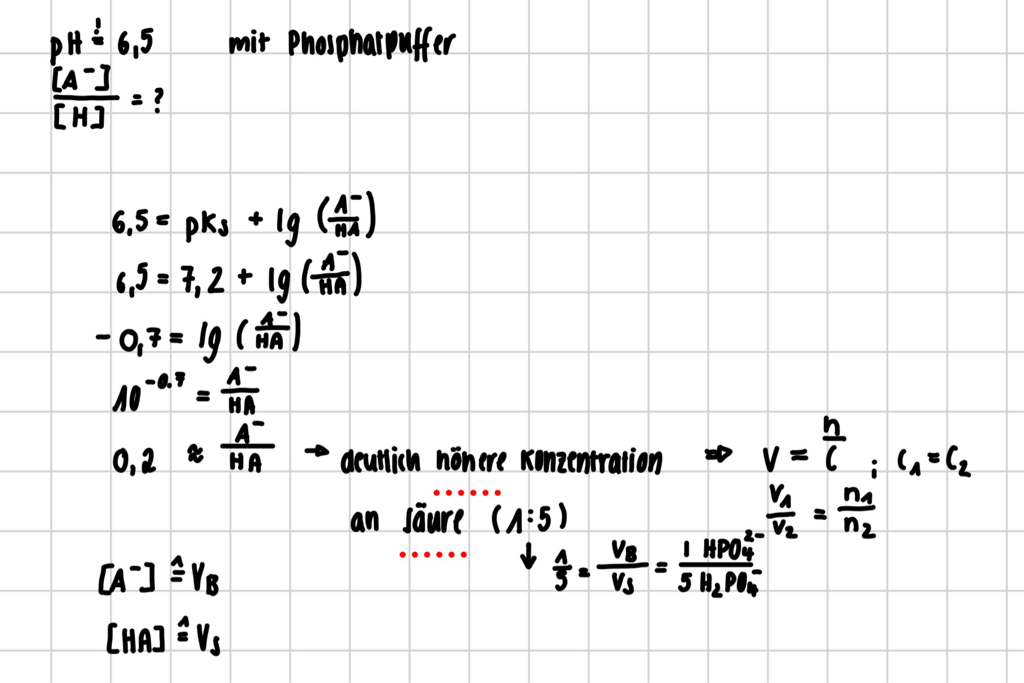 pH != 6,5 mit Phosphatpuffer
[A⁻]/[H] = ?
6,5 = pKs + lg (A⁻/HA)
6,5 = 7,2 + lg (A⁻/HA)
-0,7 = lg (A⁻/HA)
10^-0.7 = A⁻/HA
0,2 ≈ A⁻/HA → deutlich höhere Konzentration ⇒ V = n/C ; C₁ = C₂
an säure (1:5) V₁/V₂ = n₁/n₂
↓ 1/5 = VB/VS = 1 HPO₄²⁻/5 H₂PO₄⁻
[A⁻] ≙ VB
[HA] ≙ VS